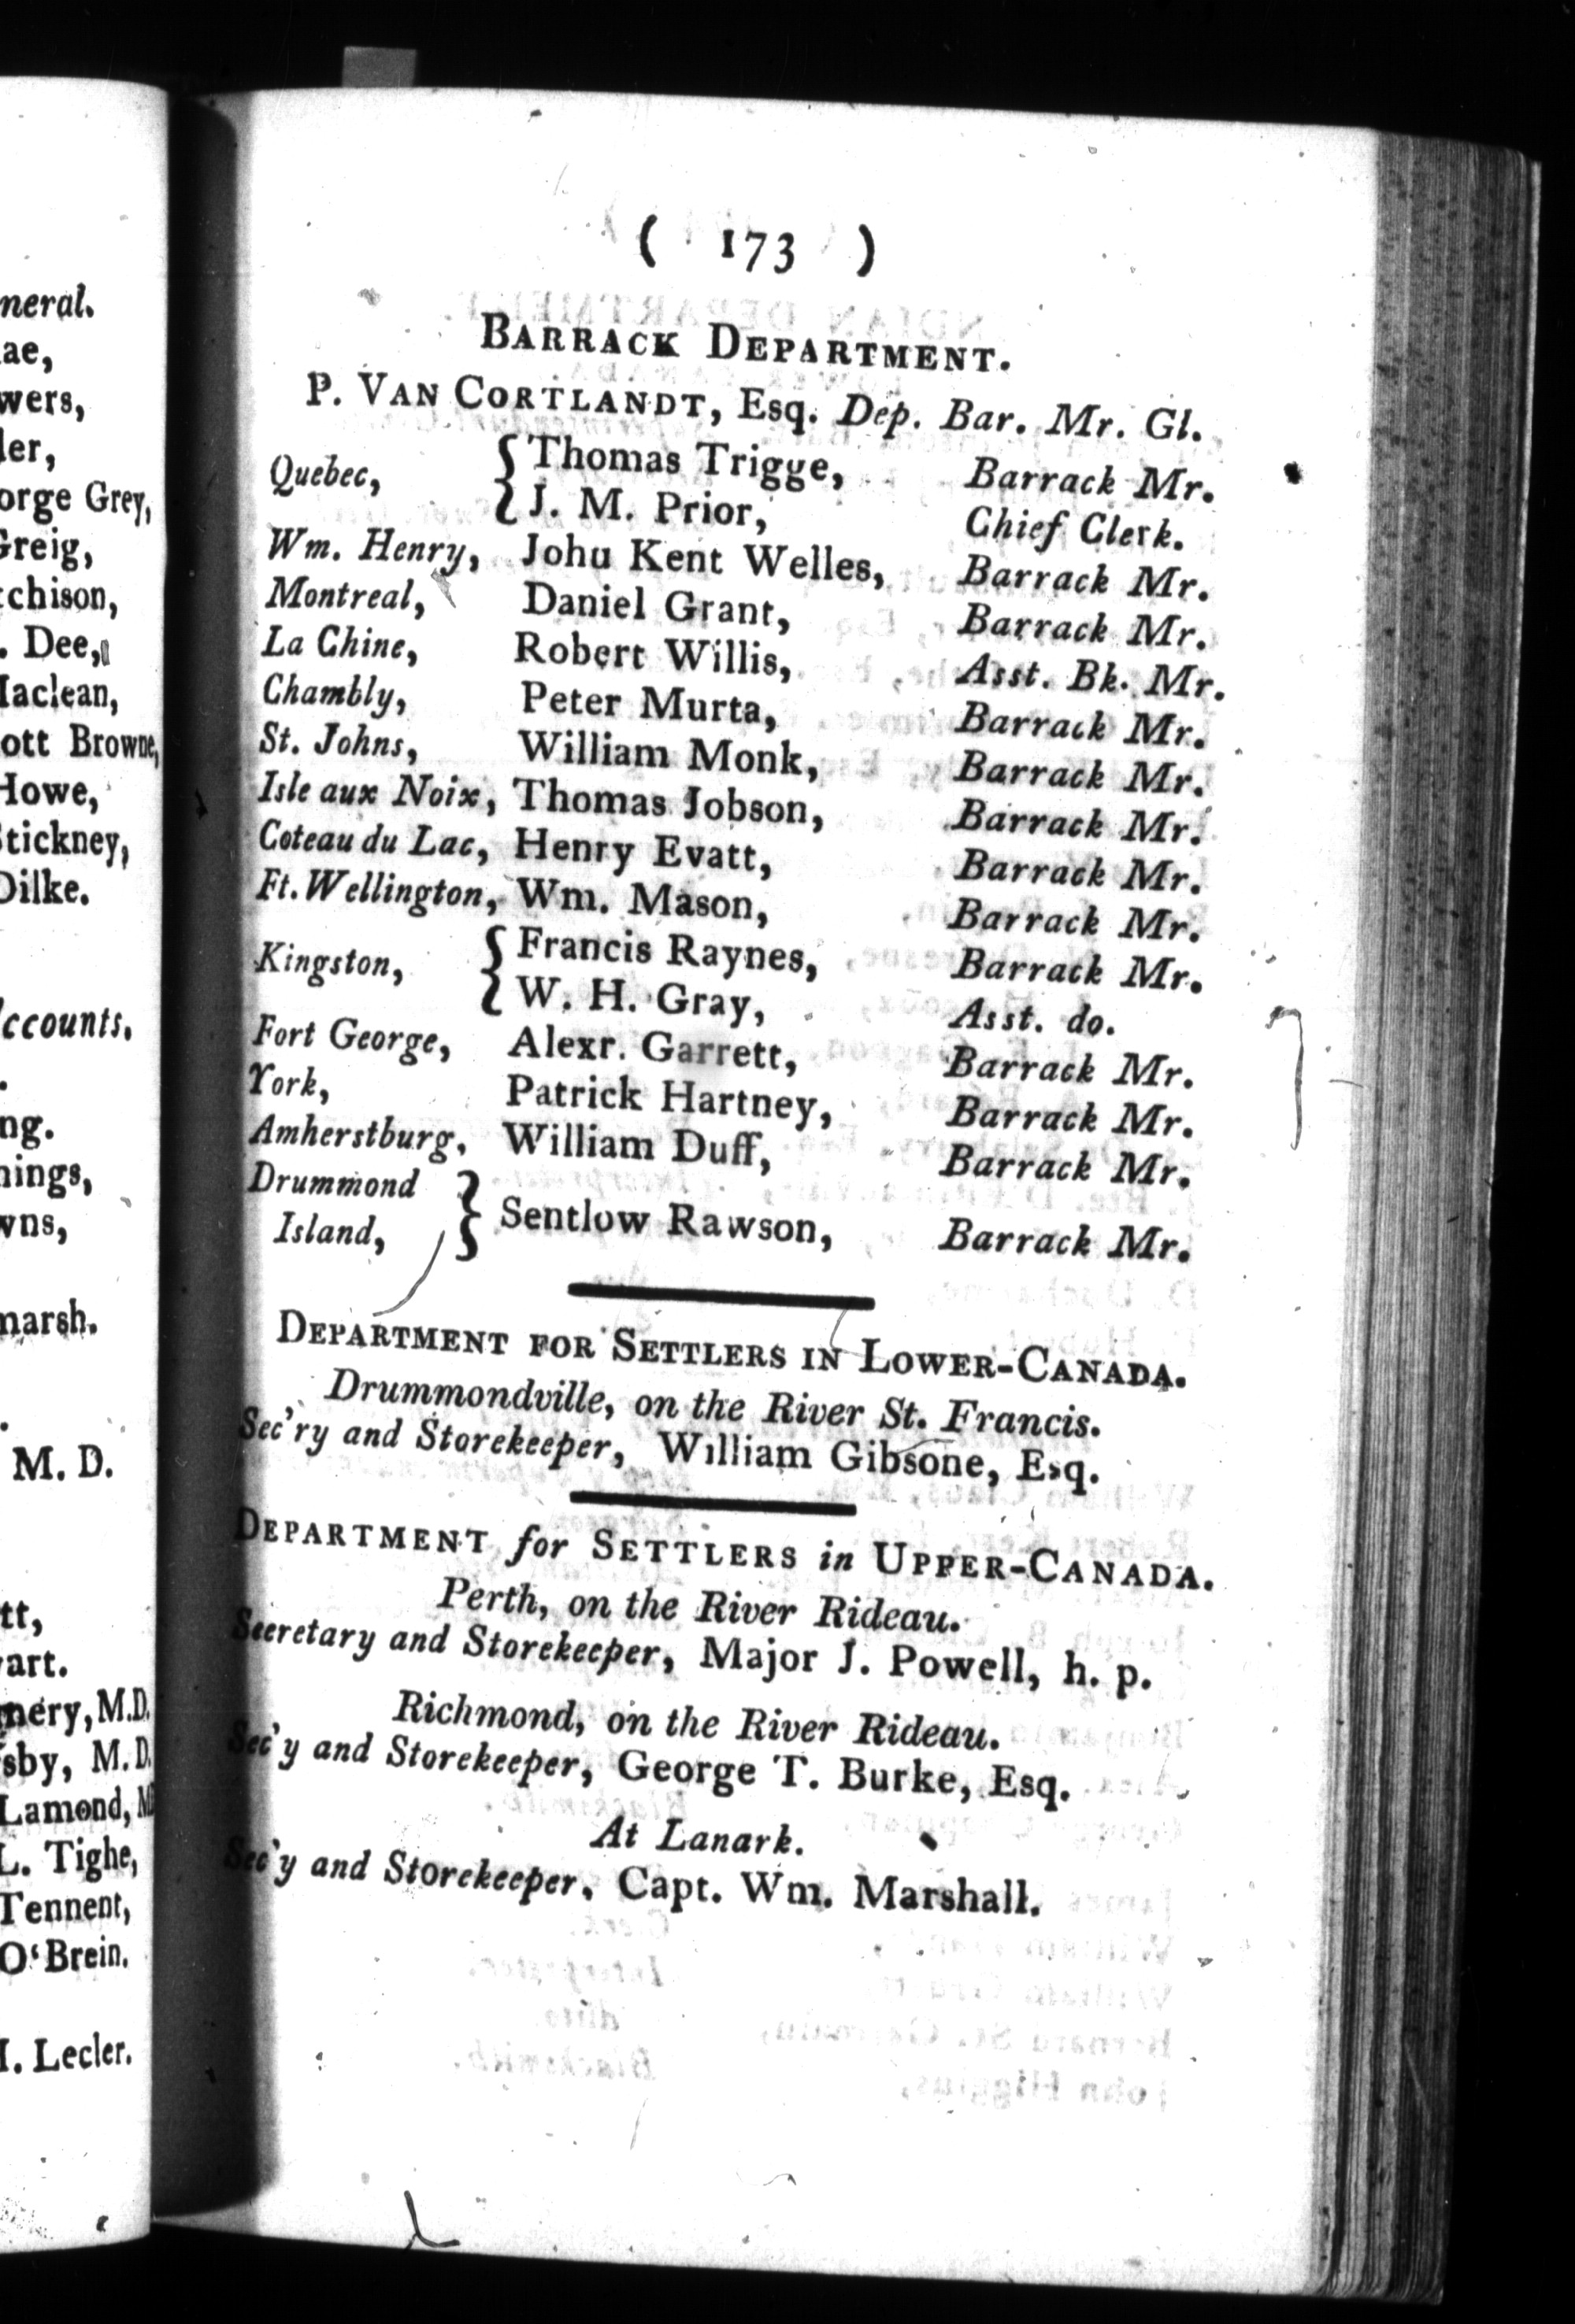 neral.
ae,
wers,
ler,
orge Grey,
Greig,
chison,
. Dee,
Maclean,
ott Browne,
Howe,
Stickney,
Dilke.
ccounts.
ng.
nings,
wns,
marsh.
M. D.
tt,
art.
mery, M.D.
sby, M. D.
Lamond,
L. Tighe,
Tennent,
O'Brein.
I. Lecler.
( 173 )
BARRACK DEPARTMENT.
P. VAN CORTLANDT, Esq. Dep. Bar. Mr. Gl.
Quebec, { Thomas Trigge, Barrack Mr.
J. M. Prior, Chief Clerk.
Wm. Henry, Johu Kent Welles, Barrack Mr.
Montreal, Daniel Grant, Barrack Mr.
La Chine, Robert Willis, Asst. Bk. Mr.
Chambly, Peter Murta, Barrack Mr.
St. Johns, William Monk, Barrack Mr.
Isle aux Noix, Thomas Jobson, Barrack Mr.
Coteau du Lac, Henry Evatt, Barrack Mr.
Ft. Wellington, Wm. Mason, Barrack Mr.
Kingston, { Francis Raynes, Barrack Mr.
W. H. Gray, Asst. do.
Fort George, Alexr. Garrett, Barrack Mr.
York, Patrick Hartney, Barrack Mr.
Amherstburg, William Duff, Barrack Mr.
Drummond
Island, } Sentlow Rawson, Barrack Mr.
DEPARTMENT FOR SETTLERS IN LOWER-CANADA.
Drummondville, on the River St. Francis.
Sec'ry and Storekeeper, William Gibsone, Esq.
DEPARTMENT for SETTLERS in UPPER-CANADA.
Perth, on the River Rideau.
Secretary and Storekeeper, Major J. Powell, h. p.
Richmond, on the River Rideau.
Sec'y and Storekeeper, George T. Burke, Esq.
At Lanark.
Sec'y and Storekeeper, Capt. Wm. Marshall.